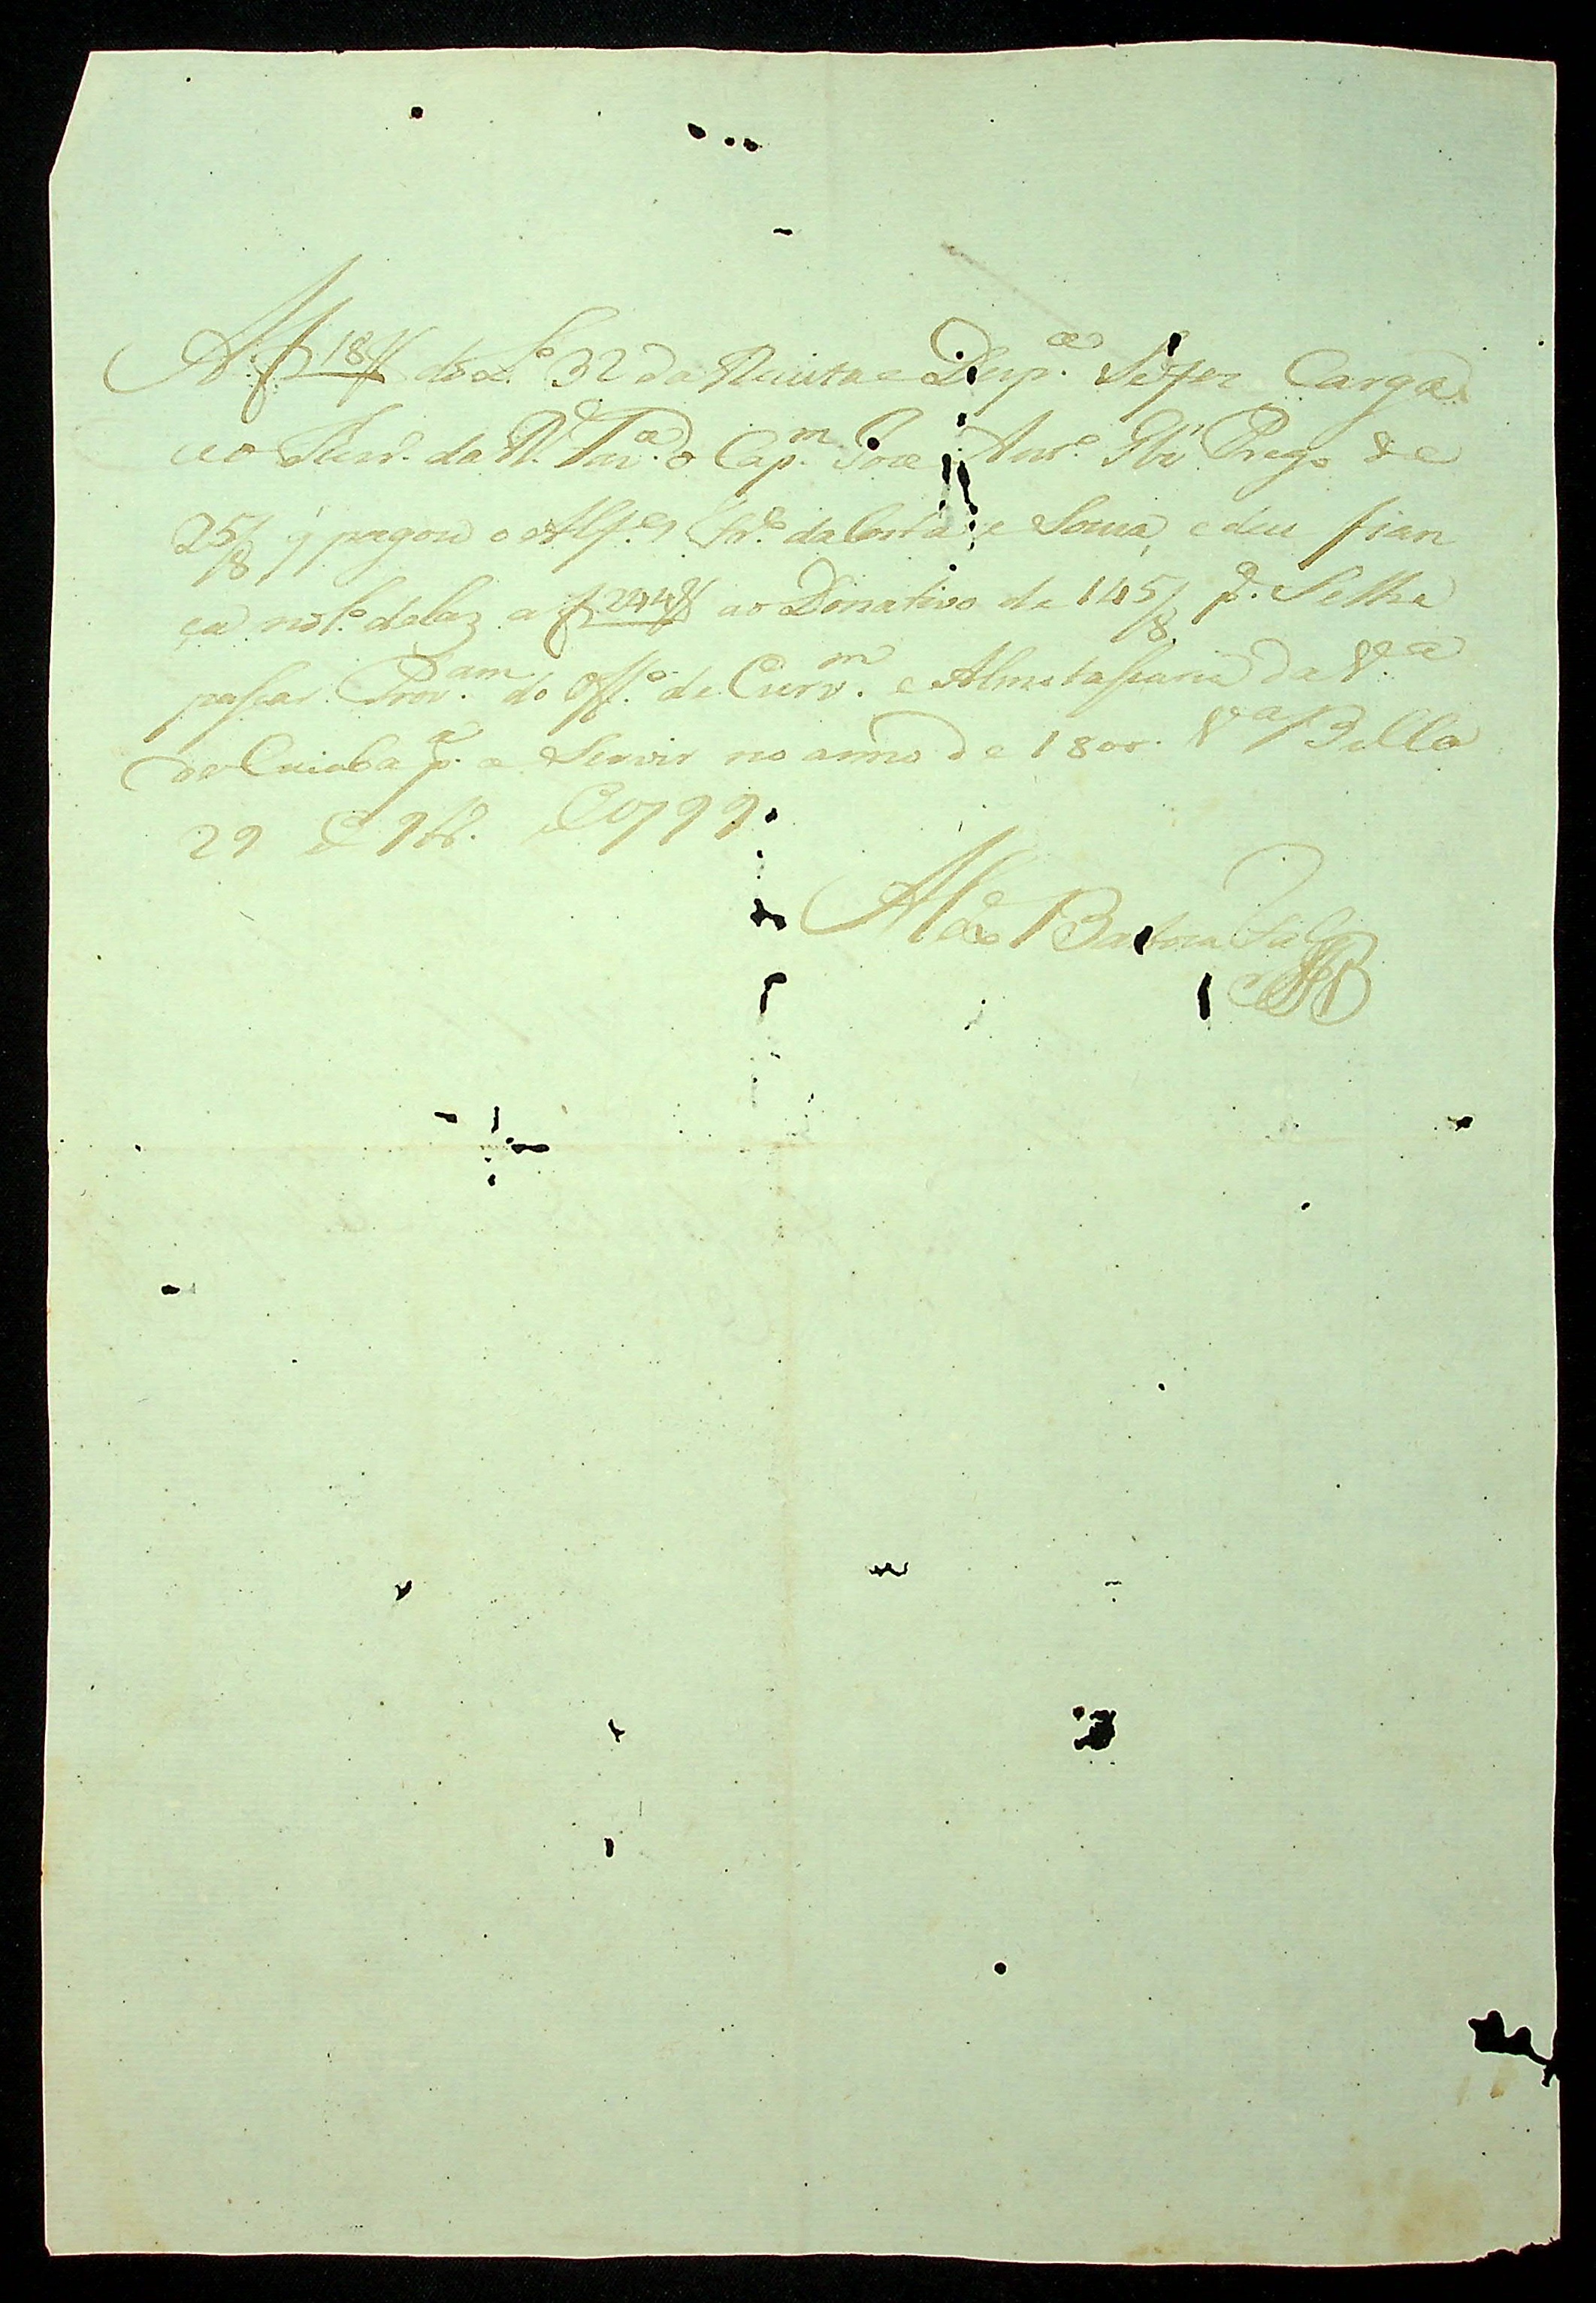 A f 18 do L.º 32 da Receita e Desp.ª Se fez Carga
ao Tizr.º da R. Faz.ª o Cap.m Joze Ant.º Glz' Prego de
25/8 q' pagou o Alf.es da Costa e Souza, e deu fian
ça no L.º dellas a f 244 ao Donativo de 145/8 p.ª Se lhe
passar Prov.am do Off.º de Escriv.m e Almotasaria da V.ª
do Cuiaba p.ª Servir no anno de 1800. V.ª Bella
29 de 9br.º de 1799.
Barboza